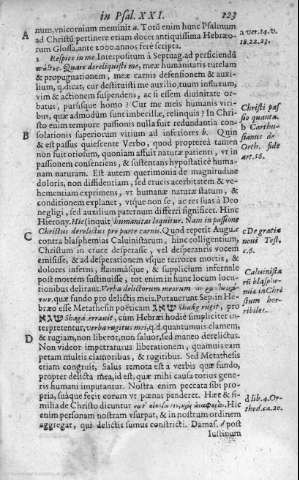 in Psal. XXI.
223
A
num, vnicornium meminit a. Totũ enim hunc Psalmum
ad Christũ pertinere etiam docet antiquissima Hebræo-
rum Glossa, ante 1000. annos ferè scripta.
2 Respice in me. Interpositum à Septuag. ad perficiendũ
Quare dereliquisti me, meæ humanitatis tutelam
& propugnationem, meæ carnis defensionem & auxi-
lium, q. dicat, cur destituisti me auxilio, tuum influxum,
vim & actionem suspendens, ac si essem diuinitate or-
batus, purúsque homo? Cur me meis humanis viri-
bus, quæ admodum sunt imbecillæ, relinquis? in Chri-
sto enim tempore passionis nulla fuit redundantia con-
B
solationis superiorum vitium ad inferiores b. Quin
& est passus quiescente Verbo, quod propterea tamen
non fuit otiosum, quoniam assuit naturæ patienti, vt in
passionem consentiens, & sustentans hypostaticè huma-
nam naturam. Est autem querimonia de magnitudine
doloris, non diffidentiam, sed crucis acerbitatem & ve-
hementiam exprimens, vt humanæ naturæ statum, &
conditionem explicet, vtque non se, ac res suas à Deo
negligi, sed auxilium paternum differri significet. Hinc
Hierony. Hæc (inquit) humanitas loquitur. Nam in passione
Christus derelictus pro parte carnis. Quod repetit August.
C
contra blasphemias Caluinistarum, hinc colligentium,
Christum in cruce desperasse, vel desperantis vocem
emisisse, & ad desperationem vsque terrores mortis, &
dolores inferni, flammásque, & supplicium infernale
post mortem sustinuisse, tot enim in hunc locum locu-
tionibus delirant. Verba delictorum meorum
quæ fundo pro delictis meis. Putauerunt Sep. in He-
bræo esse Metathesin poëticam שאג Shaág rugiit, pro
שגא Shagà errauit, cùm Hebræi hodiè simpliciter in-
terpretentur, verba rugitus mei, q. d. quantumuis clamem,
D
& rugiam, non liberor, non saluor, sed maneo derelictus.
Non videor impetraturus liberationem, quamuis eam
petam multis clamoribus, & rugitibus. Sed Metathesis
etiam congruit, Salus remota est à verbis quæ fundo,
propter delicta mea, id est, quæ mihi causa totius gene-
ris humani imputantur. Nostra enim peccata sibi pro-
pria, suáque fecit eorum vt pœnas penderet. Hæc & si-
milia de Christo dicuntur Hic
enim personam nostram vsurpat, & in nostrum ordinem
aggregat, qui delictis sumus constricti. Damas. d post
Iustinum
a ver. 14. v.
18. 22. 23.
Christi pas
sio quanta.
b Carthu-
sianus de
Orth. fide
art. 16.
c De gratia
noui Test.
c. 6.
Caluinista
rũ blasphe-
mia in Chri
stum hor-
ribiles.
d lib. 4. Or-
thod. ca. 20.